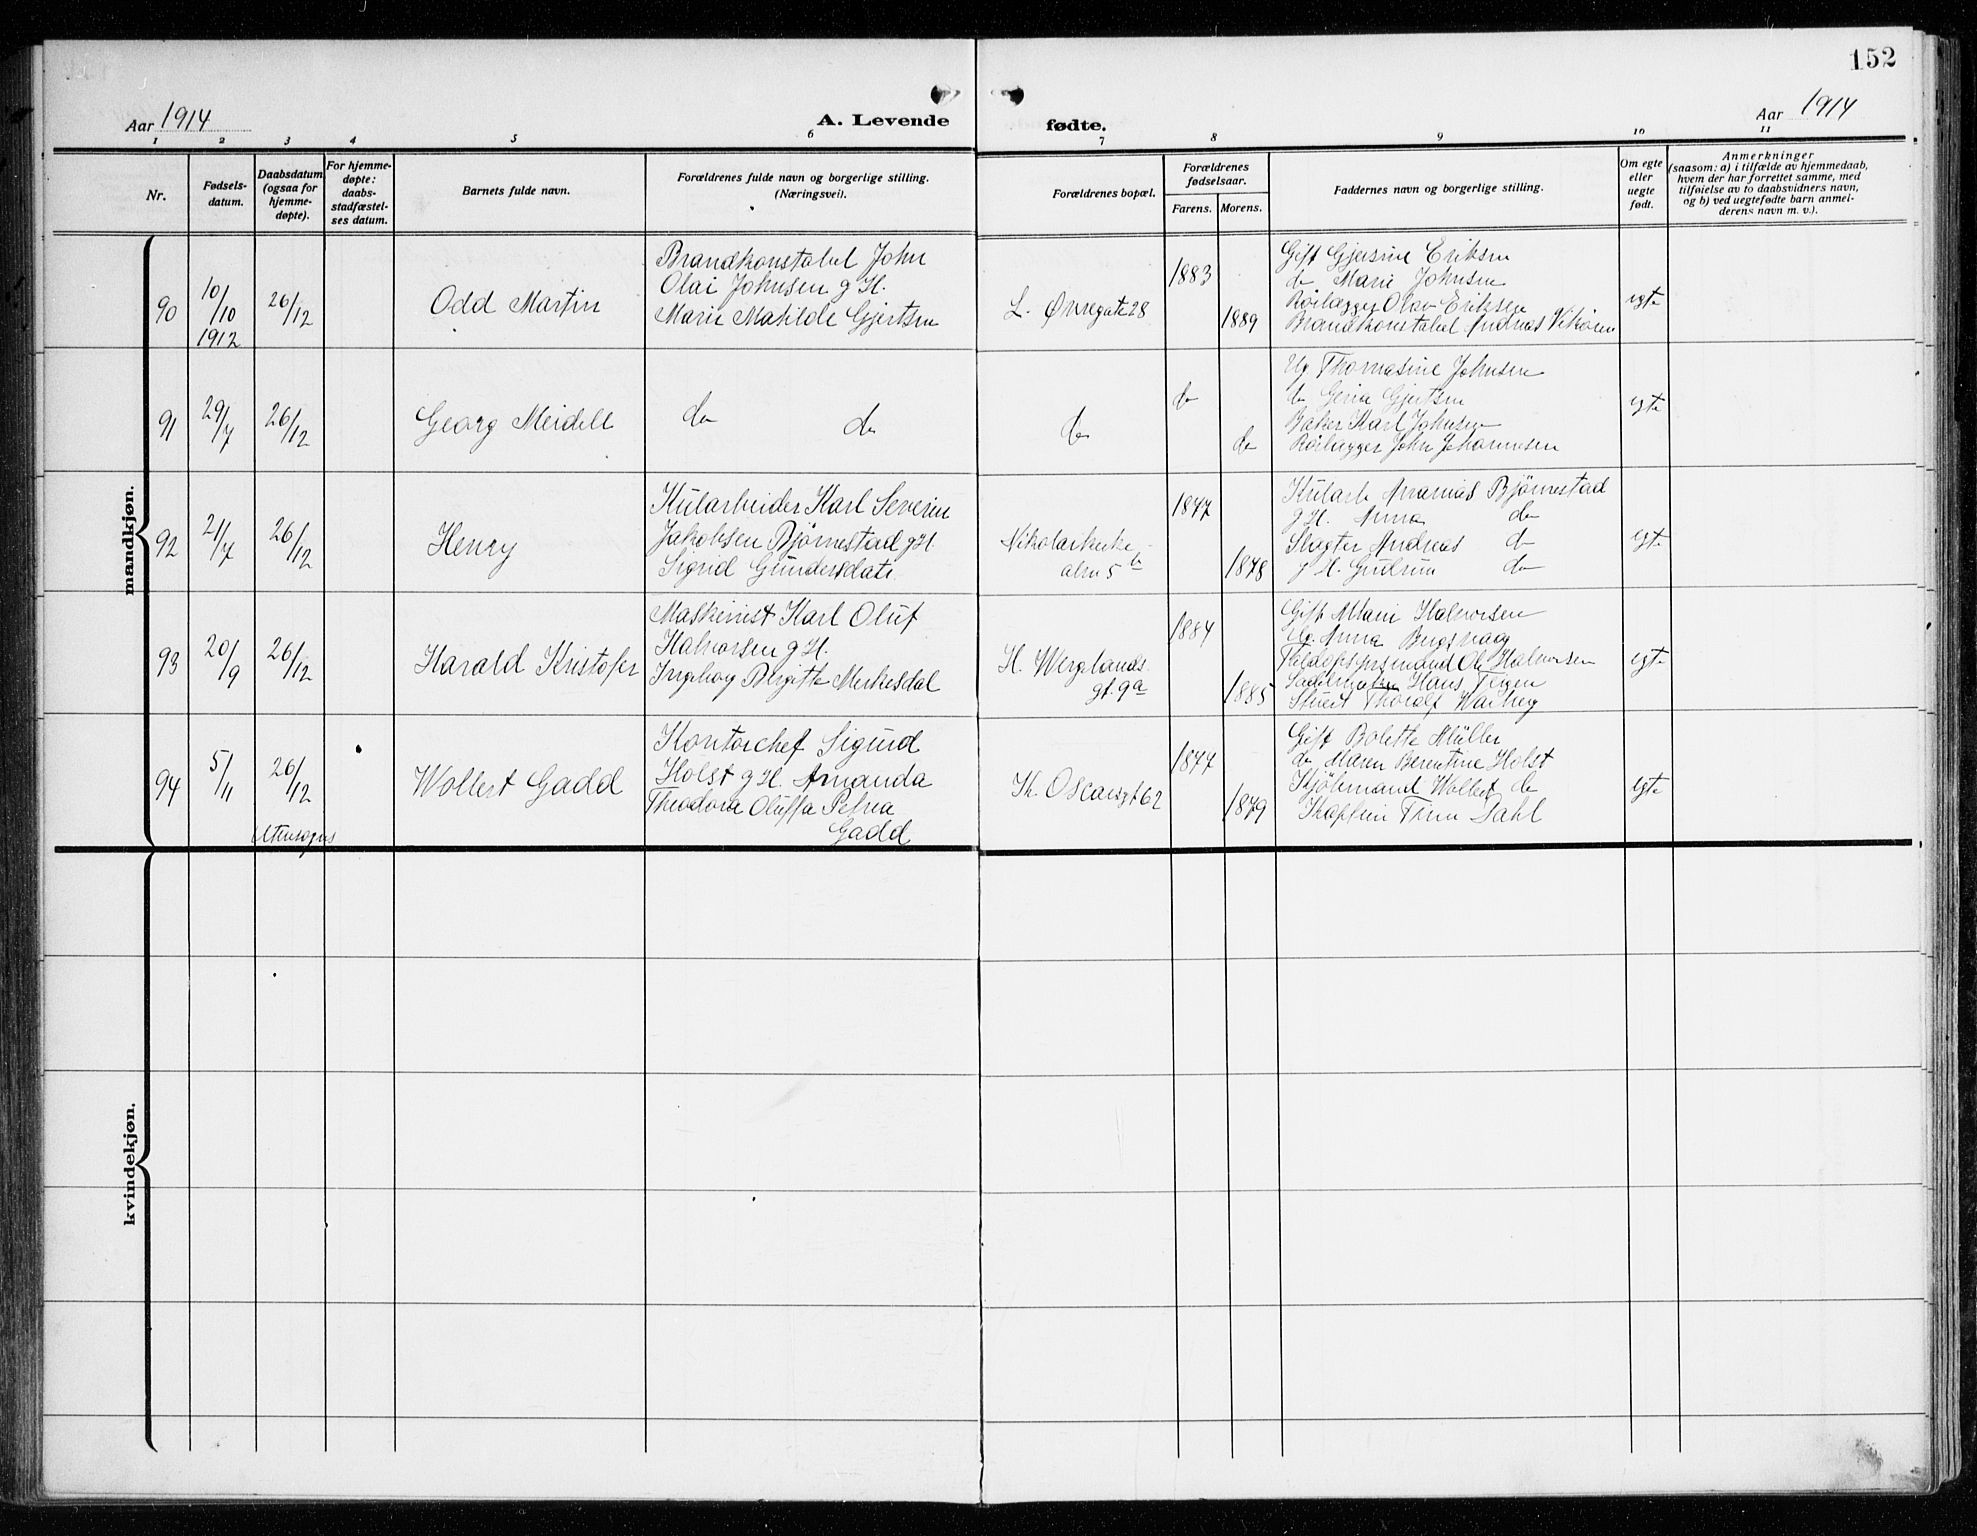 152
Aar 1914
A. Levende
fødte.
Aar 1914
1 2 3 4 5 6 7 8 9 10 11
Nr.
Fødsels-
datum.
Daabsdatum
(ogsaa for
hjemme-
døpte).
For hjemme-
døpte:
daabs-
stadfæstel-
ses datum.
Barnets fulde navn.
Forældrenes fulde navn og borgerlige stilling.
(Næringsvei).
Forældrenes bopæl.
Forældrenes
fødselsaar.
Farens. Morens.
Faddernes navn og borgerlige stilling.
Om egte
eller
uegte
født.
Anmerkninger
(saasom: a) i tilfælde av hjemmedaab,
hvem der har forrettet samme, med
tilføielse av to daabsvidners navn,
og b) ved uegtefødte barn anmel-
derens navn m. v.).
mandkjøn.
90
10/10
1912
26/12
Odd Martin
Brandkonstabel John
Olai Johnsen g H.
Marie Matilde Gjertsen
L. Øvregate 28
1883
1889
Gift Gjersine Eriksen
do Marie Johnsen
Rørlægger Olav Eriksen
Brandkonstabel Andreas Vikøren
egte
91
29/7
26/12
Georg Meidell
do do
do
do
do
Ug Thomasine Johnsen
do Gjertsen
Baker Karl Johnsen
Rørlægger John Johannesen
egte
92
21/7
26/12
Henry
Kularbeider Karl Severin
Jakobsen Bjørnestad g H.
Sigrid Gundersdatr.
Nikolaikirke-
alm 5 b
1877
1878
Kularb Ananias Bjørnestad
g H. Anna do
Slagter Andreas do
g H. Gudrun do
egte
93
20/9
26/12
Harald Kristofer
Maskinist Karl Oluf
Halvorsen g H.
Ingeborg Birgitte Merkesdal
H. Wergelands
gt. 9a
1884
1885
Gift Marie Halvorsen
Ug. Anna
Ole Halvorsen
Sadelmaker Hans Teigen
Stuert Thoralf
egte
94
5/11
26/12
Wollert Gadd
Kontorchef Sigurd
Holst g H. Amanda
Theodora Oluffa Petrea
Gadd
K. Oscarsgt 62
1877
1879
Gift Bolette Müller
do Maren Berentine Holst
Kjøbmand Wollert do
Kaptein Dahl
egte
kvindekjøn.